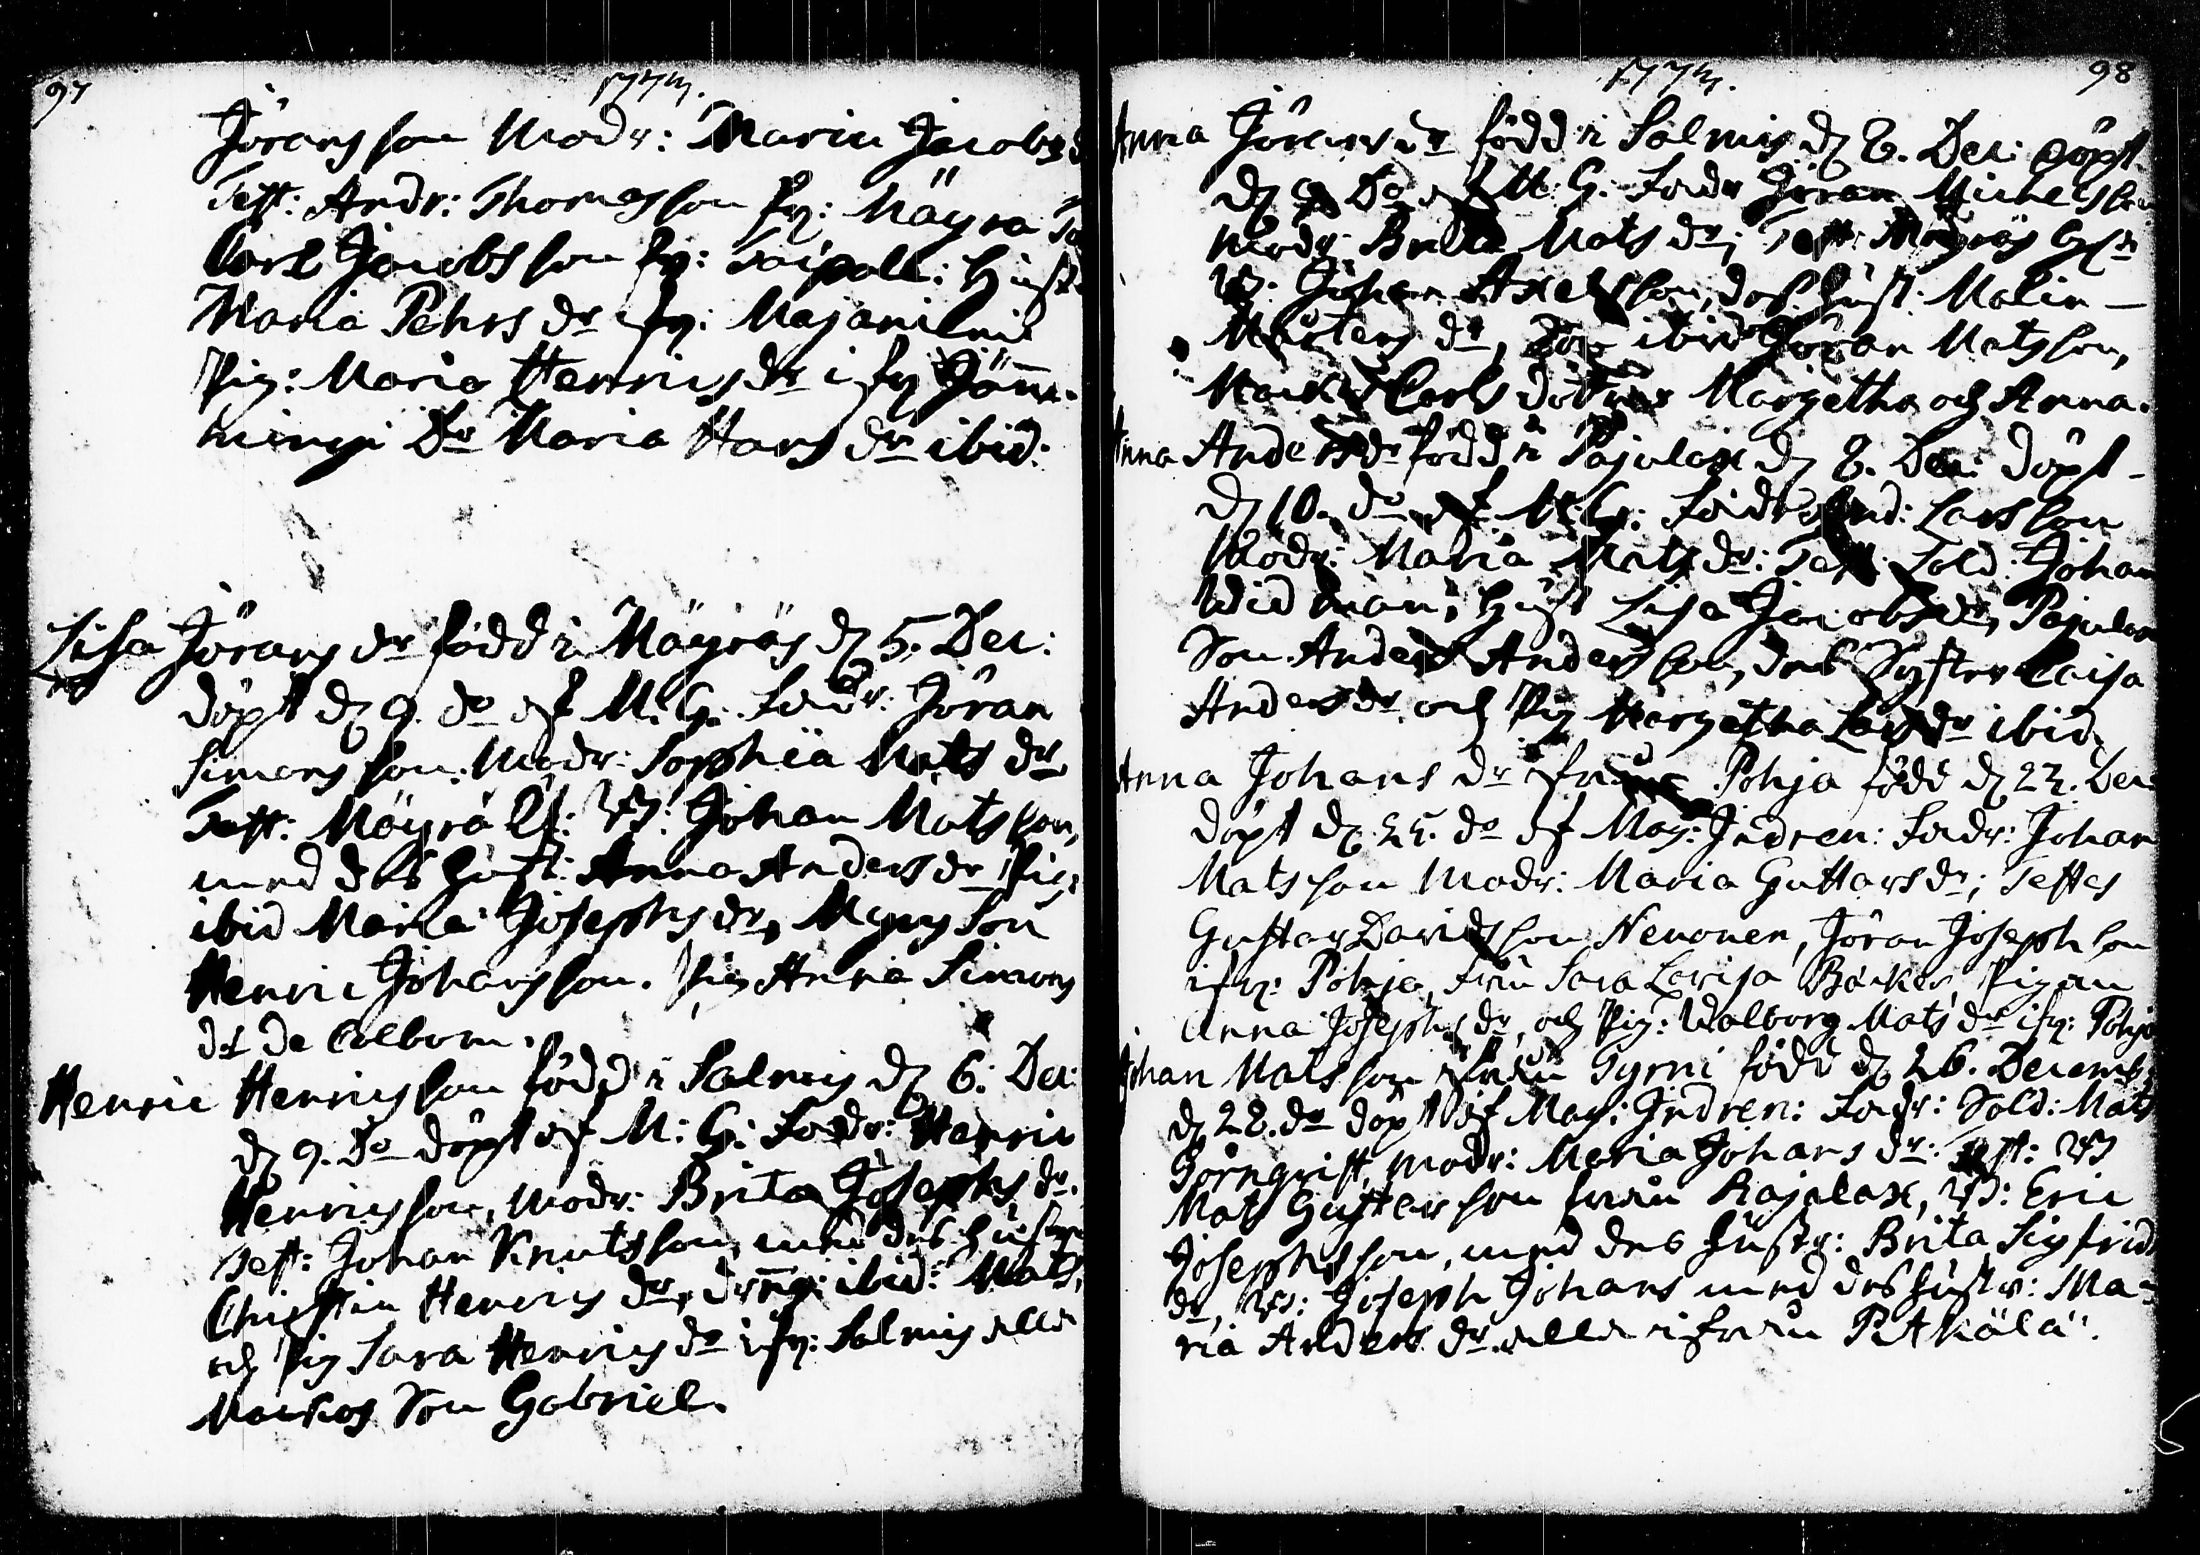 97
1774.
Jöransson Modr: Maria Jacobs d
Test: Andr: Thomasson fr: Mäyrä
Carl Jacobsson fr: Taipall: Hustr
Maria Pehrs dr ifr: Majaniemi
Pig: Maria Henrics dr ifr
dr Maria Hans dr ibid:
Lisa Jörans dr född i Mäyräs d 5. Dec:
döpt d 9. do af M. G. Fadr: Jöran
Simonsson. Modr: Sophia Mats dr
Test: Mäyrä Johan Matsson,
med dess Hust: Anna Anders dr Pig:
ibid Maria Josephs dr, Son
Henric Johansson. Pig Anna Simons
dr de Colbom.
Henric Henricsson född i Salmis d 6. Dec:
d 9. do döpt af M: G: Fadr: Henric
Henricsson, Modr: Brita Josephs dr.
Test: Johan Knutsson, med dess Hustru
Christin Henrics dr, dräng: ibid: Mats,
och Pig Sara Henrics dr ifr: Salmis alla
Markos Son Gabriel.
1774.
98
Anna Jörans dr född i Salmis d 8. Dec: döpt
d 9 do af M. G: Fadr Jöran Michelsson
Modr: Brita Mats dr; Test: Mäyräs
Johan Axelsson, dess Hust: Malin
Mårtens dr, ibid Jöran Matsson,
Carls döttrar Margetha och Anna.
Anna Anders dr född i Pajulax d 8. Dec: döpt
d 10. do af M: G: Fadr And: Larsson
Modr: Maria Mats dr: Test: Sold: Johan
Widman, Hust Lisa Jacobs dr, Pajulax
Son Anders Andersson, dess Syster Caisa
Anders dr och Pig Margetha Lars dr ibid.
Anna Johans dr ifrån Pohja född d 22. Dec
döpt d. 25. do af Mag: Indren: Fadr: Johan
Matsson Modr: Maria Gustavs dr; Testes
Gustav Davidsson Nenonen, Jöran Josephson
ifr: Pohja, Fru Sara Lovisa Backer, Pigan
Anna Josephs dr, och Pig: Walborg Mats dr ifr: Pohja
Johan Matsson ifrån Tyrni född d 26. Decemb:
d 28. do döpt af Mag: Indren: Fadr: Sold: Mats
Törnqvist, Modr: Maria Johans dr. Test:
Mats Gustavsson ifrån Rajalax, Eric
Josephsson, med dess Hustr: Brita Sigfrids
dr, Joseph Johans med dess Hustr: Ma-
ria Anders dr alla ifrån Pitkälä.